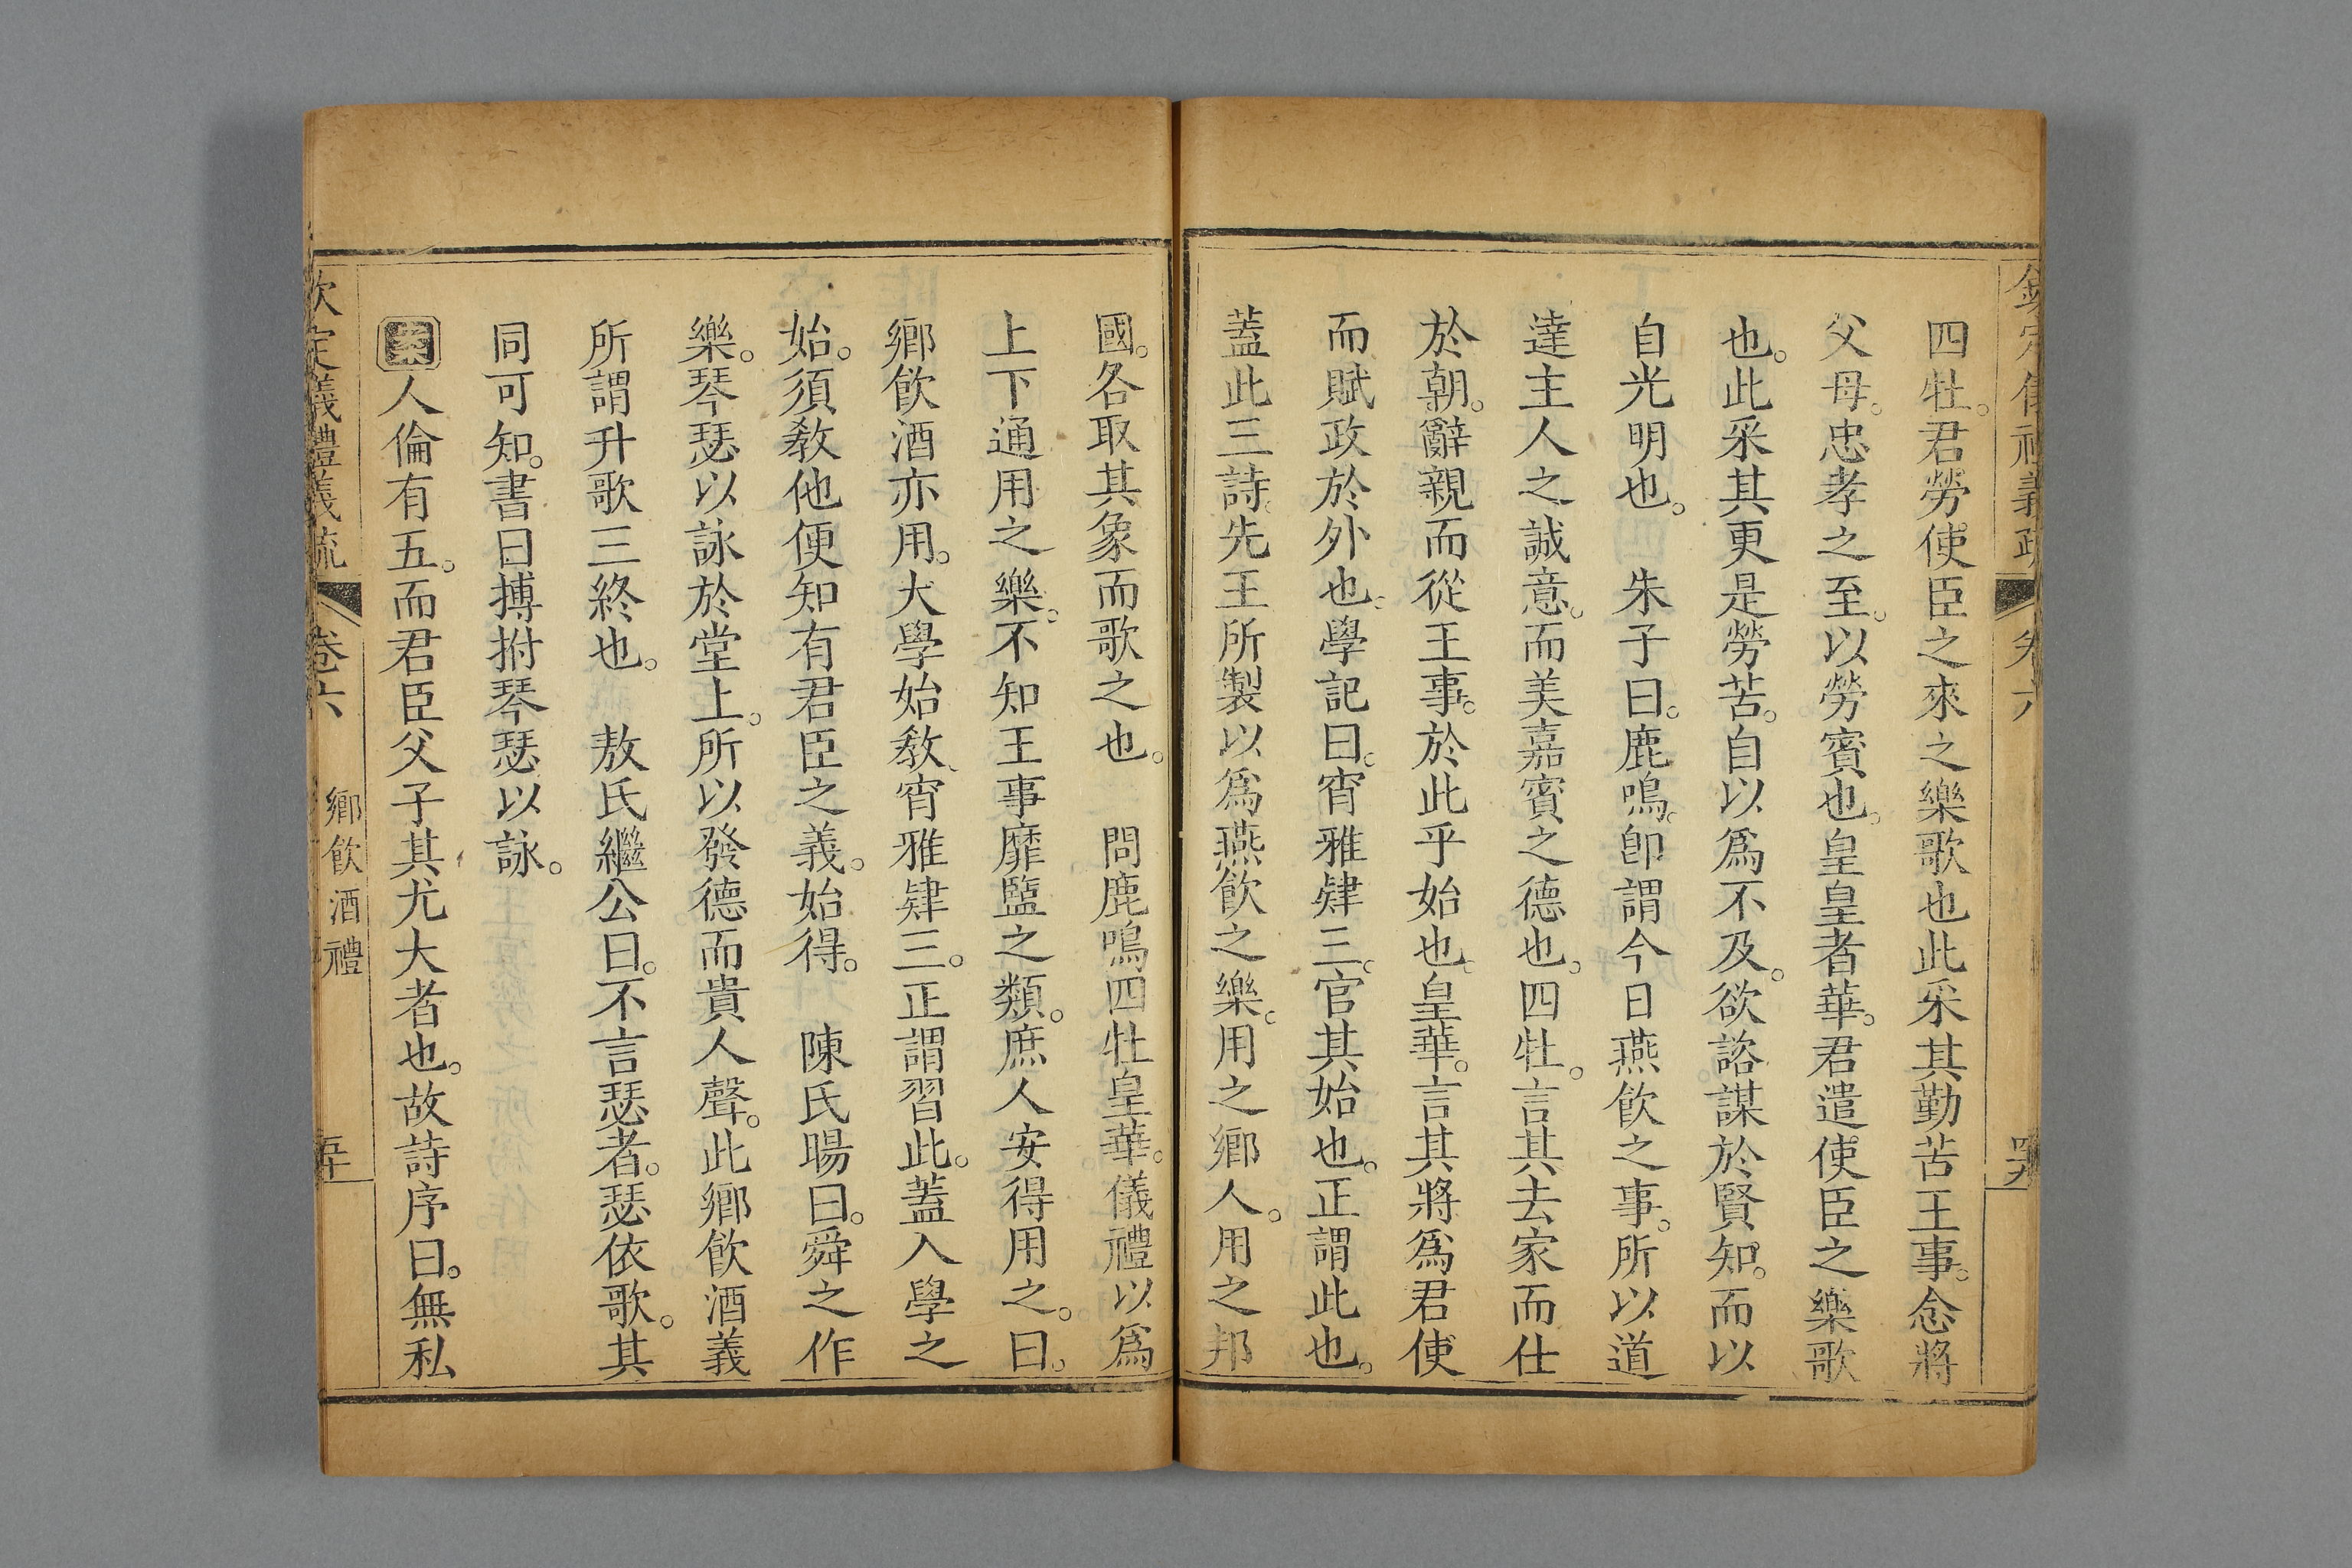 欽定儀禮義疏 卷六 四九
四牡。君勞使臣之來之樂歌也此采其勤苦王事。念將
父母。忠孝之至。以勞賓也。皇皇者華。君遣使臣之樂歌
也。此采其更是勞苦。自以爲不及。欲諮謀於賢知。而以
自光明也。　朱子曰。鹿鳴。卽謂今日燕飮之事。所以道
達主人之誠意。而美嘉賓之德也。四牡。言其去家而仕
於朝。辭親而從王事。於此乎始也。皇華。言其將爲君使
而賦政於外也。學記曰。宵雅肄三。官其始也。正謂此也。
蓋此三詩。先王所製以爲燕飮之樂。用之鄉人。用之邦
國。各取其象而歌之也。　問鹿鳴四牡皇華。儀禮以爲
上下通用之樂。不知王事靡盬之類。庶人安得用之。曰。
鄉飮酒亦用。大學始教、宵雅肄三。正謂習此。蓋入學之
始。須教他便知有君臣之義。始得。　陳氏暘曰。舜之作
樂。琴瑟以詠於堂上。所以發德而貴人聲。此鄉飮酒義
所謂升歌三終也。　敖氏繼公曰。不言瑟者。瑟依歌。其
同可知。書曰搏拊琴瑟以詠。
案人倫有五。而君臣父子其尤大者也。故詩序曰。無私
欽定儀禮義疏 卷六 鄉飮酒禮 五十